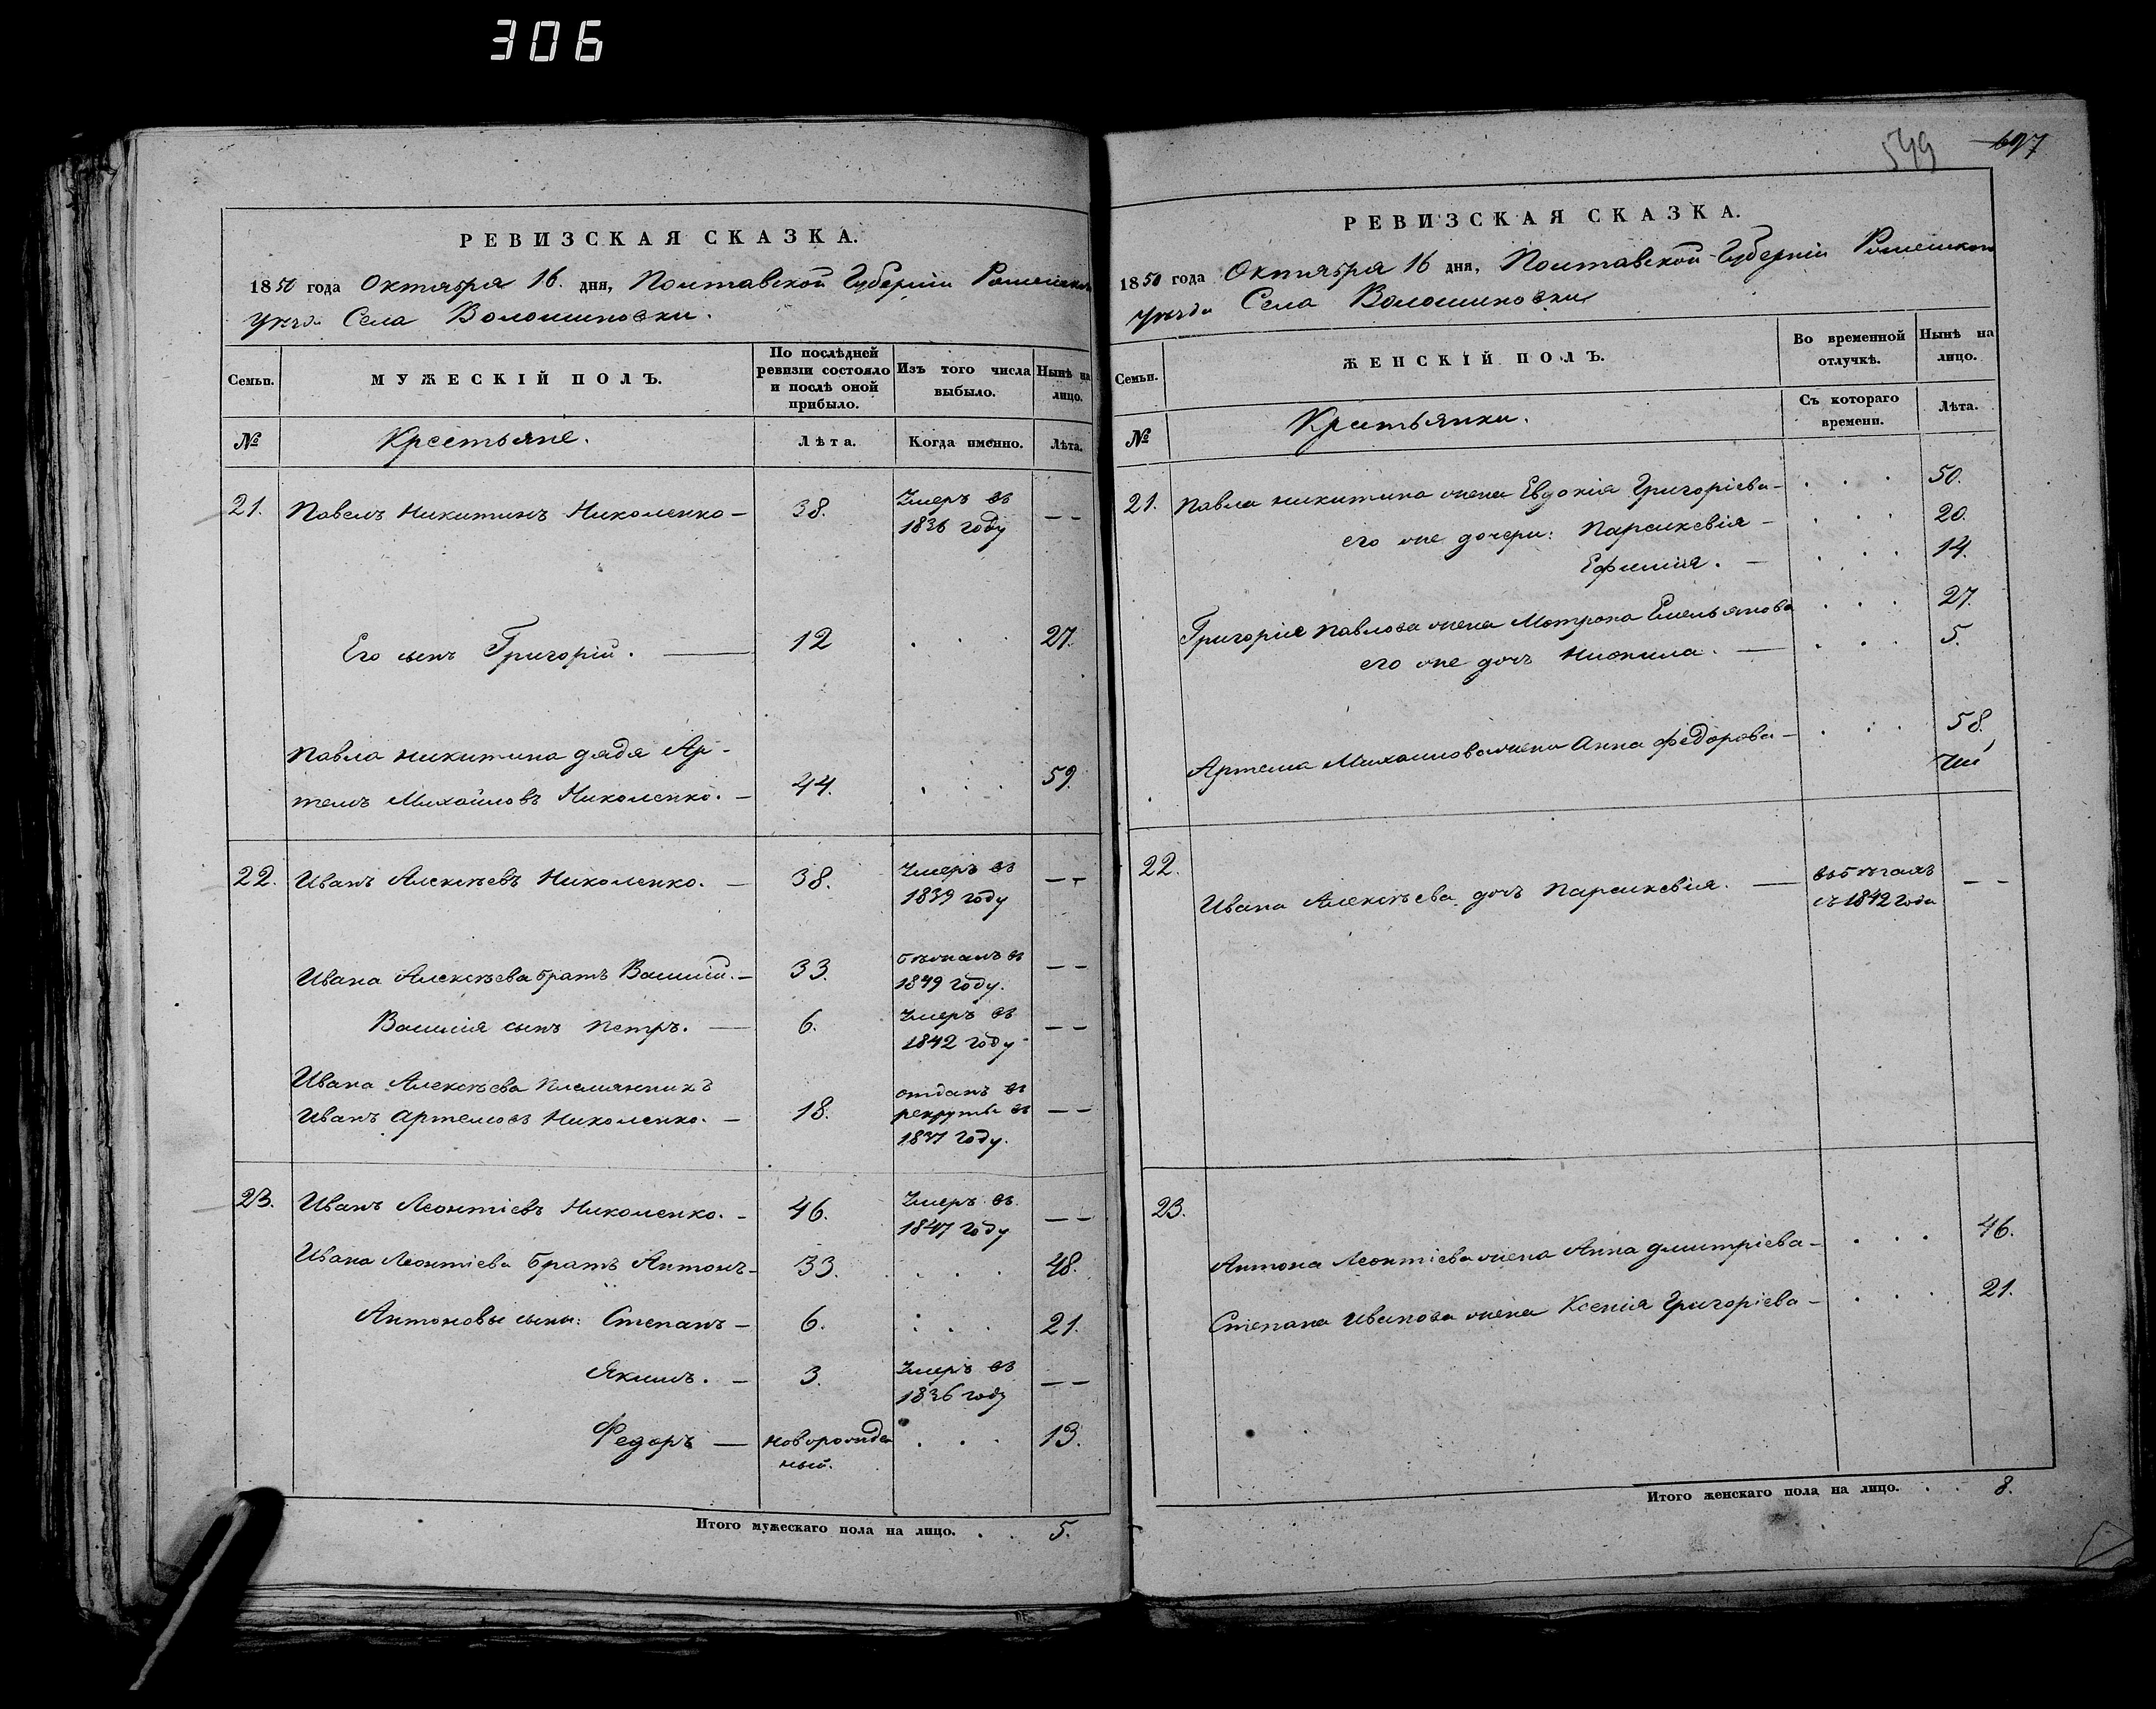 306
РЕВИЗСКАЯ СКАЗКА.
1850 года Октября 16. дня, Полтавской Губерніи Роменскаго
Уѣзда Села Волошиновки.
Семьи.
МУЖЕСКІЙ ПОЛЪ.
По послѣдней ревизіи состояло и послѣ оной прибыло.
Изъ того числа выбыло.
Нынѣ на лицо.
№
Крестьяне.
Лѣта.
Когда именно.
Лѣта.
21. Павелъ Никитинъ Николенко — 38. Умеръ въ
1836 году — —
Его сынъ Григорій. — 12 . . 27.
Павла Никитина дядя Ар-
темъ Михайловъ Николенко. — 44. . . . 59.
22. Иванъ Алексѣевъ Николенко. — 38. Умеръ въ
1839 году — —
Ивана Алексѣева братъ Василій. — 33. бѣжалъ въ
1849 году. — —
Василія сынъ Петръ. — 6. Умеръ въ
1842 году — —
Ивана Алексѣева племянникъ
Иванъ Артемовъ Николенко. — 18. отданъ въ
рекруты въ — —
1837 году.
23. Иванъ Леонтіевъ Николенко. — 46. Умеръ въ
1847 году — —
Ивана Леонтіева братъ Антонъ — 33. . . . 48.
Антоновы сыны: Степанъ — 6. . . . 21.
Якимъ. — 3. Умеръ въ
1836 году — —
Федоръ — новорожден
ный. . . . 13.
Итого мужескаго пола на лицо. . . 5.
549 697
РЕВИЗСКАЯ СКАЗКА.
1850 года Октября 16 дня, Полтавской Губерніи Роменскаго
Уѣзда Села Волошиновки
Семьи.
ЖЕНСКІЙ ПОЛЪ.
Во временной отлучкѣ.
Нынѣ на лицо.
№
Крестьянки.
Съ котораго времени.
Лѣта.
21. Павла Никитина жена Евдокія Григоріева — . . . 50.
его же дочери: Параскевія — . . . 20.
Ефимія. — . . . 14.
Григорія Павлова жена Мотрона Емельянова . . . 27.
его же дочь Неонила. — . . . 5.
Артема Михайлова жена Анна Федорова — . . . 58.
22. Ивана Алексѣева дочь Параскевія. — въ бѣгахъ
съ 1842 года — —
23.
Антона Леонтіева жена Анна Дмитріева — . . . 46.
Степана Иванова жена Ксенія Григоріева — . . . 21.
Итого женскаго пола на лицо. . . 8.